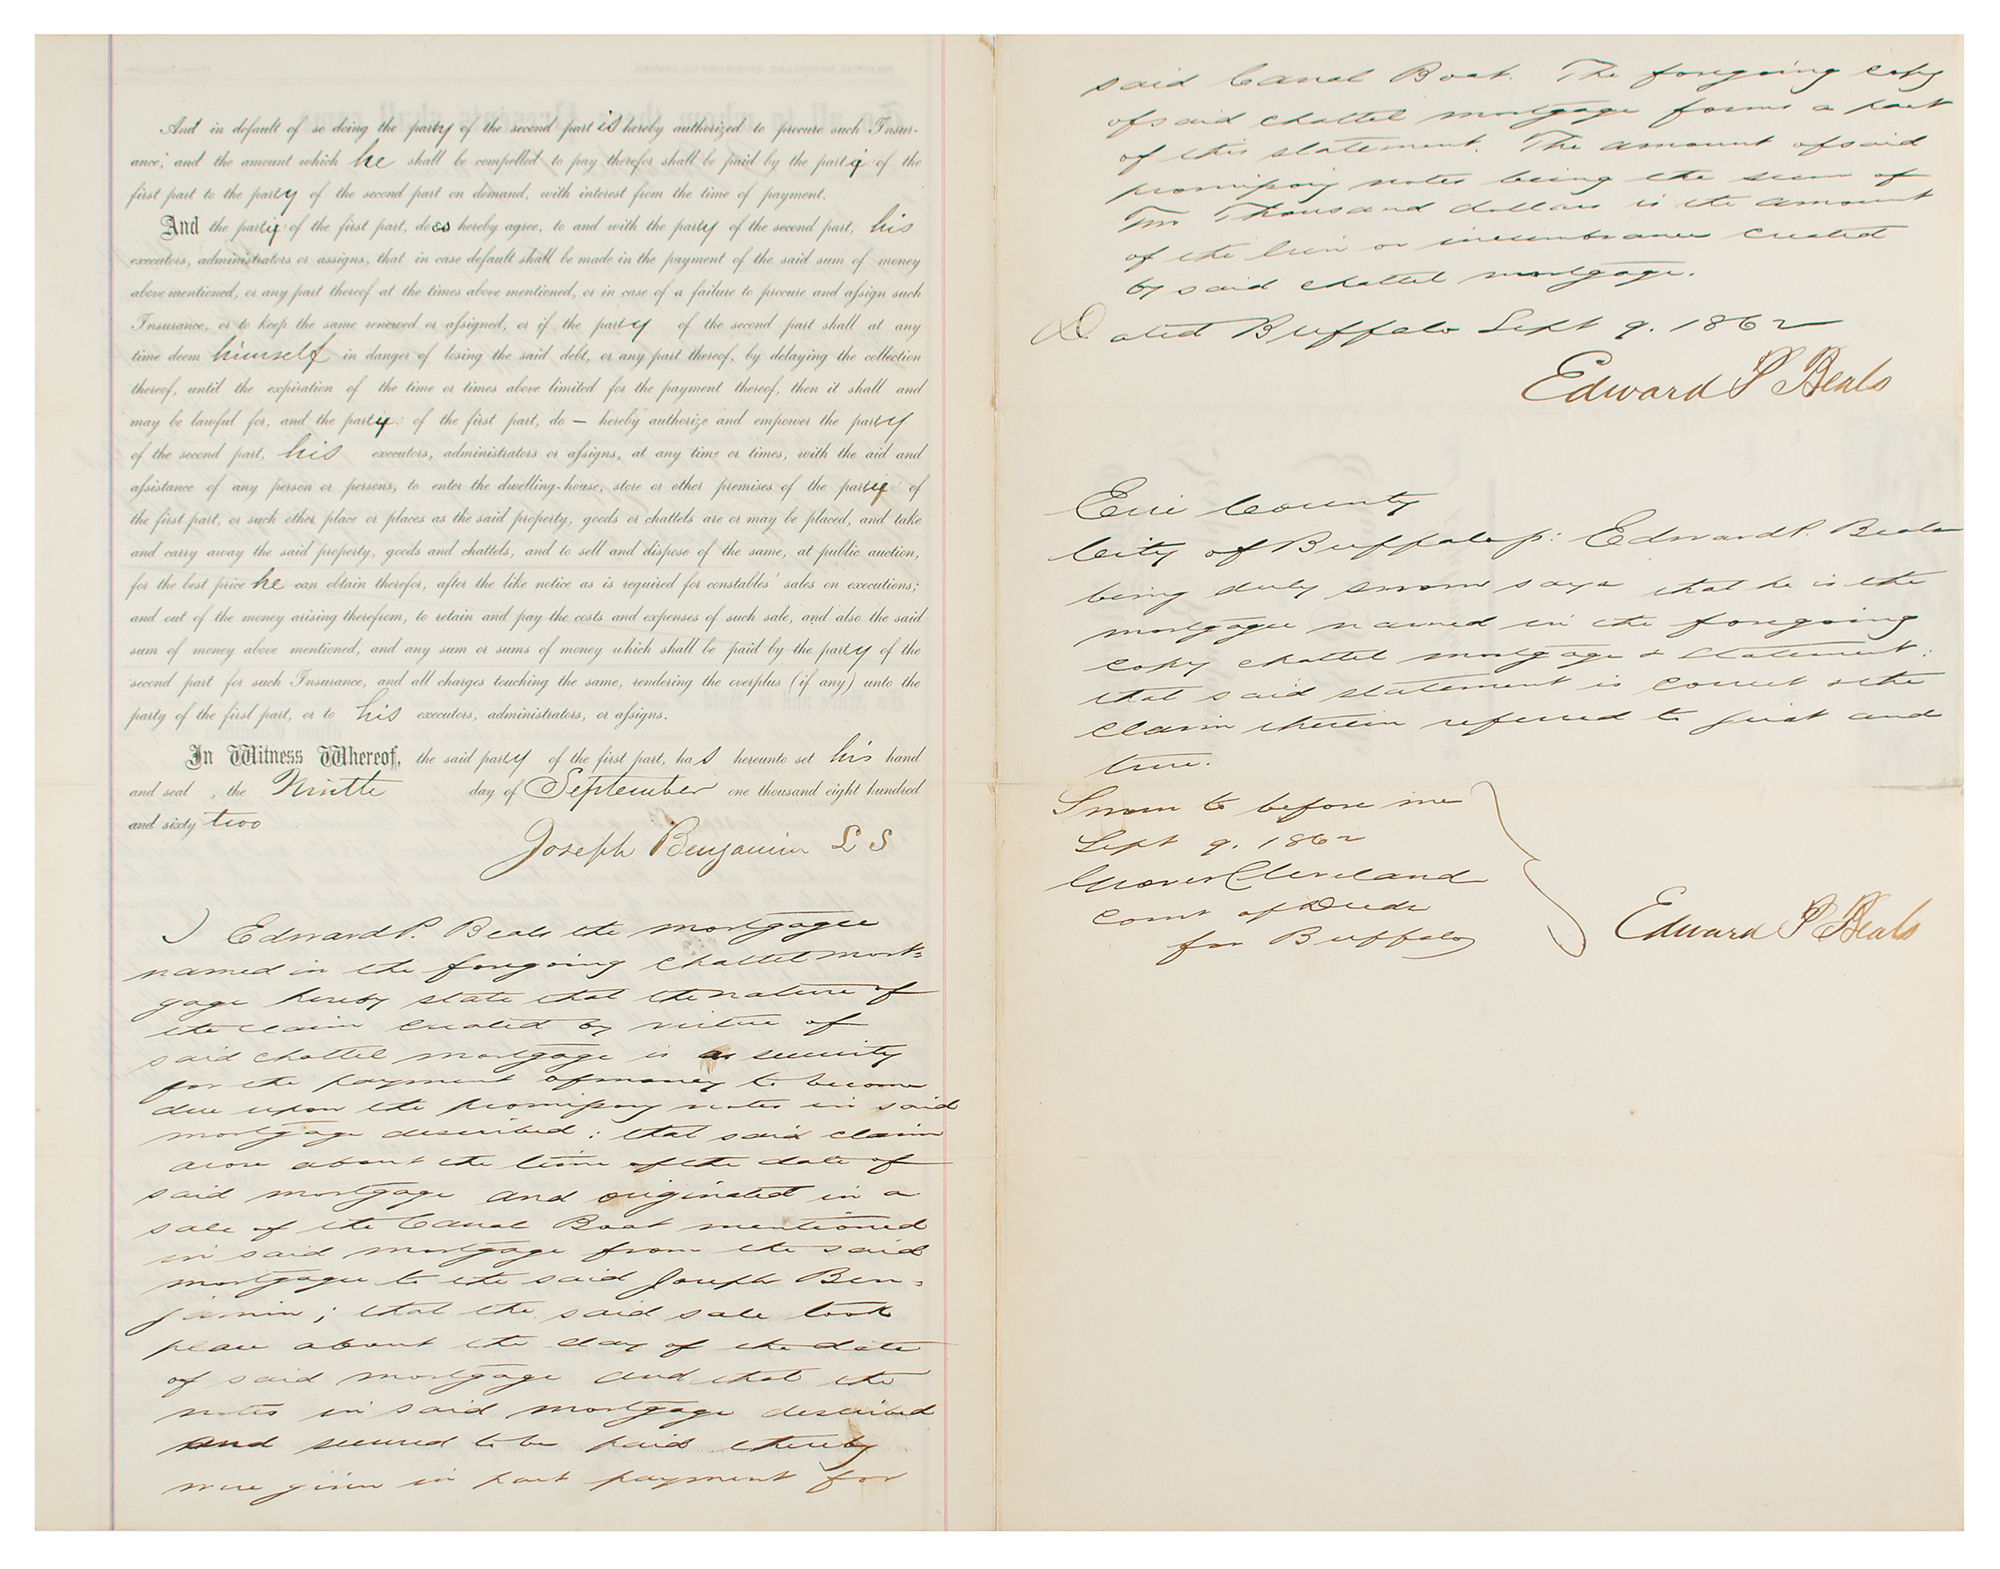 And in default of so doing the party of the second part is hereby authorized to procure such Insur-
ance; and the amount which he shall be compelled to pay therefor shall be paid by the party of the
first part to the party of the second part on demand, with interest from the time of payment.
And the party of the first part, does hereby agree, to and with the party of the second part, his
executors, administrators or assigns, that in case default shall be made in the payment of the said sum of money
above mentioned, or any part thereof at the times above mentioned, or in case of a failure to procure and assign such
Insurance, or to keep the same renewed or assigned, or if the party of the second part shall at any
time deem himself in danger of losing the said debt, or any part thereof, by delaying the collection
thereof, until the expiration of the time or times above limited for the payment thereof, then it shall and
may be lawful for, and the party of the first part, do — hereby authorize and empower the party
of the second part, his executors, administrators or assigns, at any time or times, with the aid and
assistance of any person or persons, to enter the dwelling-house, store or other premises of the party of
the first part, or such other place or places as the said property, goods or chattels are or may be placed, and take
and carry away the said property, goods and chattels, and to sell and dispose of the same, at public auction,
for the best price he can obtain therefor, after the like notice as is required for constables' sales on executions;
and out of the money arising therefrom, to retain and pay the costs and expenses of such sale, and also the said
sum of money above mentioned, and any sum or sums of money which shall be paid by the party of the
second part for such Insurance, and all charges touching the same, rendering the overplus (if any) unto the
party of the first part, or to his executors, administrators, or assigns.
In Witness Whereof, the said party of the first part, has hereunto set his hand
and seal, the Ninth day of September one thousand eight hundred
and sixty two
Joseph Benjamin L S
I Edward P. Beals the mortgagee
named in the foregoing chattel mort=
gage hereby state that the nature of
the claim created by virtue of
said chattel mortgage is as security
for the payment of money to become
due upon the promissory notes in said
mortgage described: that said claim
arose about the time of the date of
said mortgage and originated in a
sale of the Canal Boat mentioned
in said mortgage from the said
mortgagee to the said Joseph Ben=
jamin; that the said sale took
place about the day of the date
of said mortgage and that the
notes in said mortgage described
and secured to be paid thereby
were given in part payment for
said Canal Boat. The foregoing copy
of said chattel mortgage forms a part
of this statement. The amount of said
promissory notes being the sum of
Two Thousand dollars is the amount
of the lien or incumbrance created
by said chattel mortgage.
Dated Buffalo Sept 9. 1862
Edward P Beals
Erie County
City of Buffalo ss: Edward P. Beals
being duly sworn says that he is the
mortgagee named in the foregoing
copy chattel mortgage & statement:
that said statement is correct & the
claim therein referred to just and
true.
Sworn to before me
Sept 9. 1862
Grover Cleveland
Comr of Deeds
for Buffalo
Edward P Beals